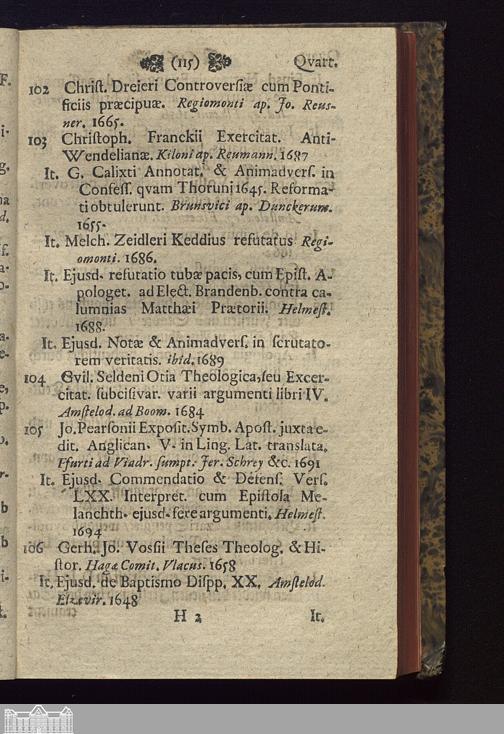 (115) Qvart.
102 Christ. Dreieri Controversiæ cum Ponti-
ficiis præcipuæ. Regiomonti ap. Jo. Reus-
ner. 1665.
103 Christoph. Franckii Exercitat. Anti-
Wendelianæ. Kiloni ap. Reumann. 1687
It. G. Calixti Annotat. & Animadvers. in
Confess. qvam Thoruni 1645. Reforma-
ti obtulerunt. Brunsvici ap. Dunckerum.
1655.
It. Melch. Zeidleri Keddius refutatus Regi-
omonti. 1686.
It. Ejusd. refutatio tubæ pacis, cum Epist. A-
pologet. ad Elect. Brandenb. contra ca-
lumnias Matthæi Prætorii. Helmest.
1688.
It. Ejusd. Notæ & Animadvers. in scrutato-
rem veritatis. ibid. 1689
104 Gvil. Seldeni Otia Theologica, seu Exer-
citat. subcisivar. varii argumenti libri IV.
Amstelod. ad Boom. 1684
105 Jo. Pearsonii Exposit. Symb. Apost. juxta e-
dit. Anglican. V. in Ling. Lat. translata.
Ffurti ad Viadr. sumpt. Jer. Schrey &c. 1691
It. Ejusd. Commendatio & Defens. Vers.
LXX. Interpret. cum Epistola Me-
lanchth. ejusd. fere argumenti. Helmest.
1694
106 Gerh. Jo. Vossii Theses Theolog. & Hi-
stor. Hagæ Comit. Vlacus. 1658
It. Ejusd. de Baptismo Dispp. XX. Amstelod.
Elzevir. 1648
H 2 It.